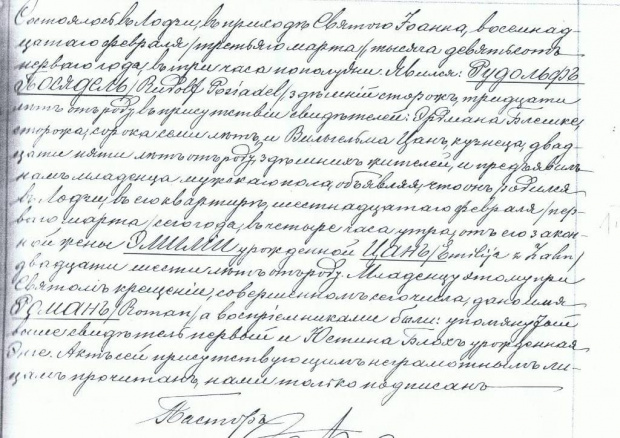 Состоялось въ Лодзи, въ приходѣ Святого Іоанна, восемнад-
цатаго февраля /третьяго марта/ тысяча девятьсотъ
перваго года, въ три часа пополудни. Явился: Рудольфъ
Посядель /Rudolf Posiadel/, здѣшній сторожъ, тридцати
лѣтъ отъ роду, въ присутствіи свидѣтелей: Эрдмана Блешке,
сторожа, сорока семи лѣтъ, и Вильгельма Цанъ, кузнеца, двад-
цати пяти лѣтъ отъ роду, здѣшнихъ жителей, и предъявилъ
намъ младенца мужскаго пола, объявляя, что онъ родился
въ Лодзи, въ его квартирѣ, шестнадцатаго февраля /пер-
ваго марта/ сего года, въ четыре часа утра, отъ его закон-
ной жены Эмиліи урожденной Цанъ /Emilije z Zahn/
двадцати шести лѣтъ отъ роду. Младенцу этому при
Святомъ крещеніи, совершенномъ сего числа, дано имя
Романъ /Roman/, а воспріемниками были: упомянутый
выше свидѣтель первый и Юстина Блохъ урожденная
Актъ сей присутствующимъ неграмотнымъ ли-
цамъ прочитанъ, нами только подписанъ
Пасторъ